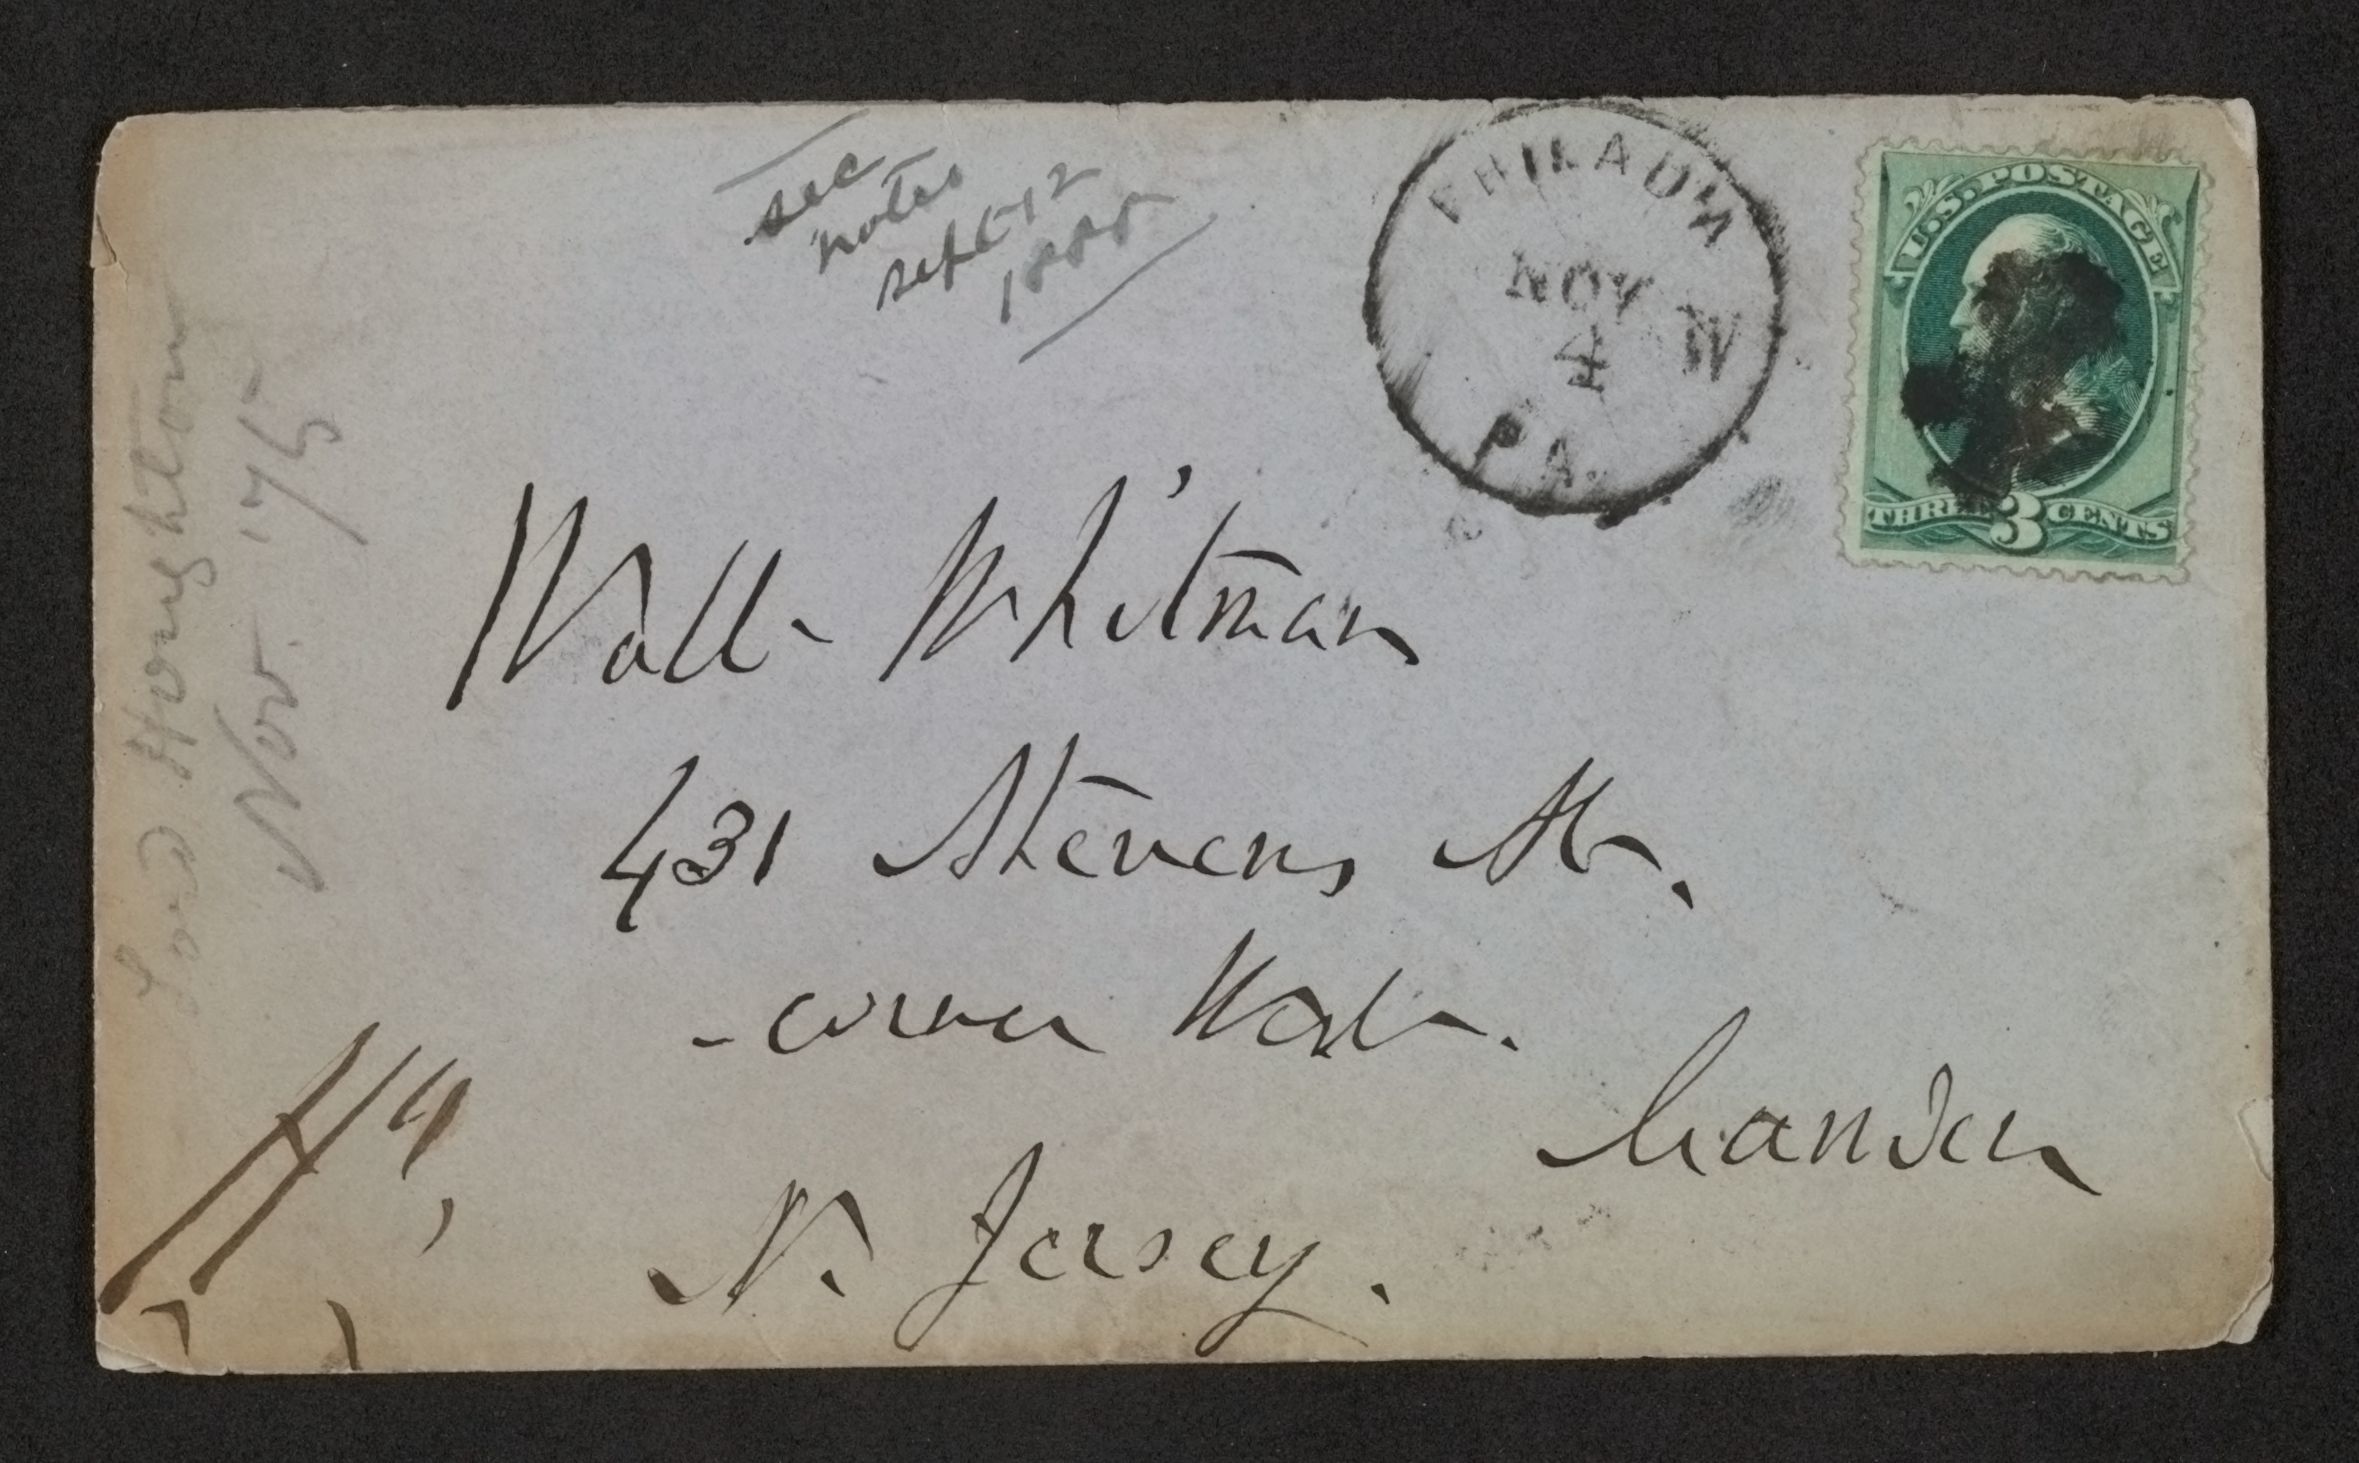 see
notes
Sept 12
1888
PHILAD'A
NOV W
4
PA.
U.S. POSTAGE
THREE 3 CENTS
Lord Houghton
Nov. '75
Walt Whitman
431 Stevens St.
- corner West.
Camden
N. Jersey.